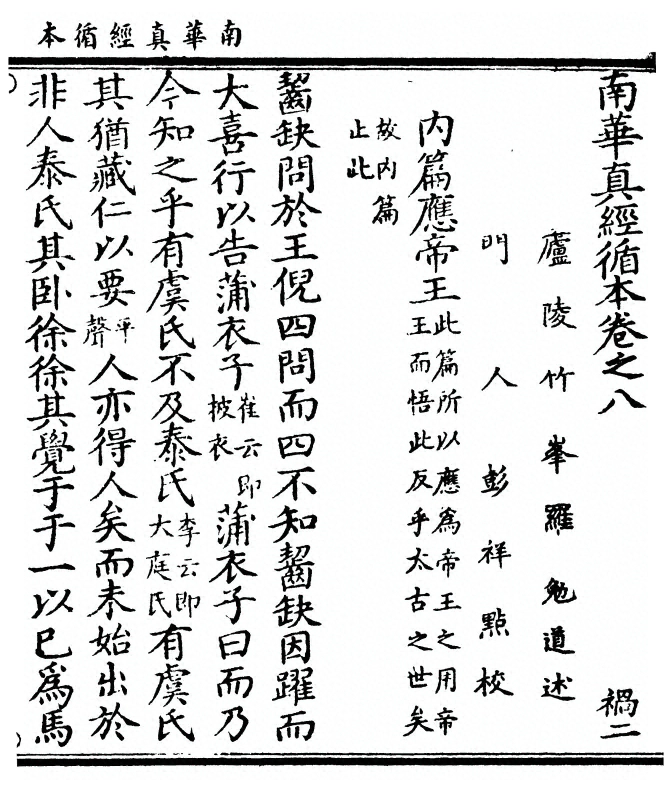 南華真經循本
南華真經循本卷之八 禍二
廬陵竹峯羅勉道述
門人彭祥點校
内篇應帝王此篇所以應爲帝王之用帝王而悟此反乎太古之世矣
故内篇止此
齧缺問於王倪四問而四不知齧缺因躍而
大喜行以告蒲衣子崔云即披衣蒲衣子曰而乃
今知之乎有虞氏不及泰氏李云即大庭氏有虞氏
其猶藏仁以要平聲人亦得人矣而未始出於
非人泰氏其卧徐徐其覺于于一以已爲馬